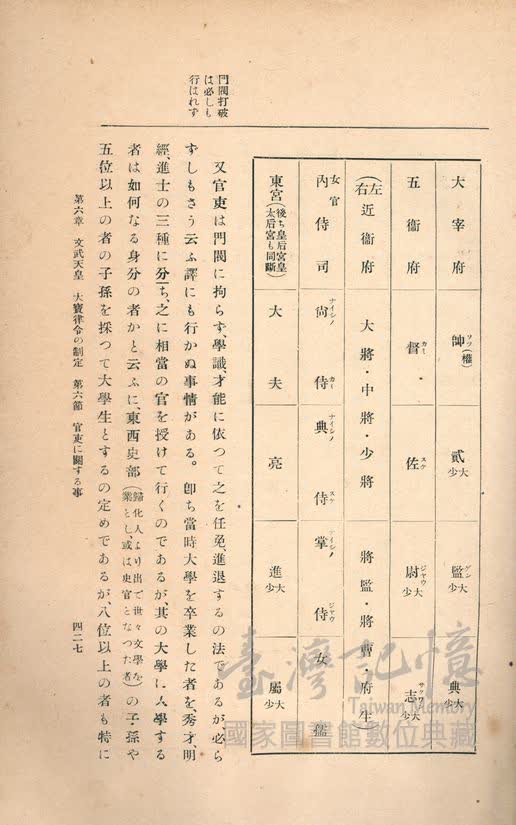 門閥打破
は必しも
行はれず
大宰府 帥(權) ソツ 貳大少 監大少 ゲン 典大少
五衞府 督 カミ 佐 スケ 尉大少 ジヤウ 志大少 サクワン
(左右)近衞府 大將・中將・少將 將監・將曹・府生
女官 內侍司 尙侍 ナイシノカミ 典侍 ナイシノスケ 掌侍 ナイシノジヤウ 女孺
東宮(後ち皇后宮皇太后宮も同斷) 大夫 亮 進大少 屬大少
又官吏は門閥に拘らず、學識、才能に依つて之を任免、進退するの法であるが必ら
ずしもさう云ふ譯にも行かぬ事情がある。卽ち當時大學を卒業した者を、秀才、明
經、進士の三種に分ち、之に相當の官を授けて行くのであるが、其の大學に入學する
者は如何なる身分の者かと云ふに、東西史部(歸化人より出で世々文學を業とし、或は史官となつた者)の子・孫や
五位以上の者の子孫を採つて大學生とするの定めであるが、八位以上の者も特に
第六章 文武天皇 大寶律令の制定 第六節 官吏に關する事
四二七
臺灣記憶
Taiwan Memory
國家圖書館數位典藏